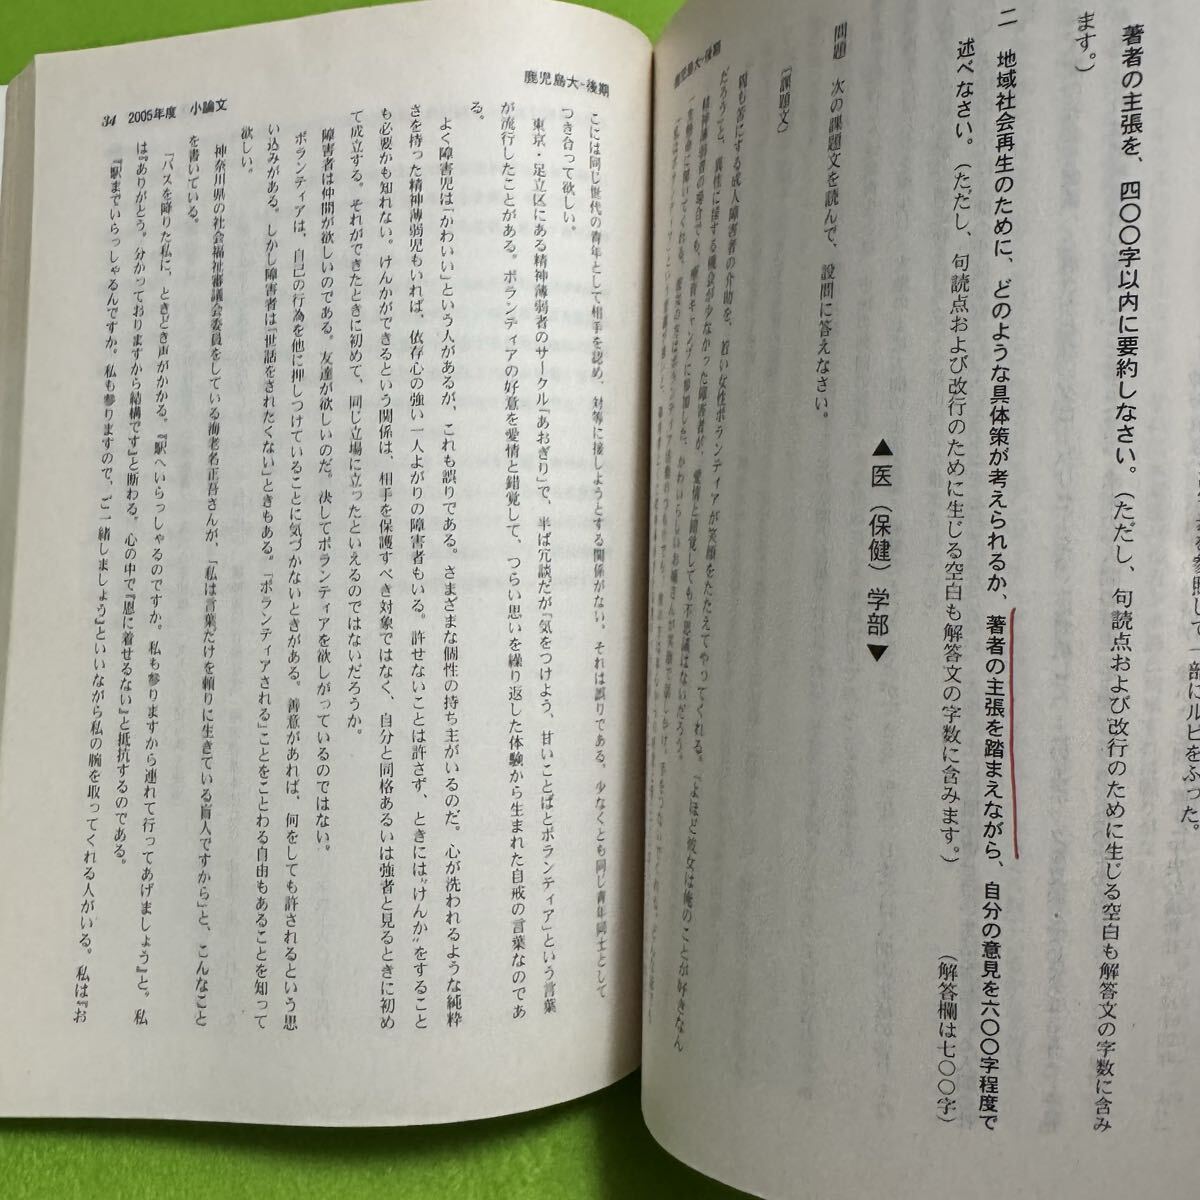 を参照して一部にルビをふった。
著者の主張を、四〇〇字以内に要約しなさい。(ただし、句読点および改行のために生じる空白も解答文の字数に含み
ます。)
二 地域社会再生のために、どのような具体策が考えられるか、著者の主張を踏まえながら、自分の意見を六〇〇字程度で
述べなさい。(ただし、句読点および改行のために生じる空白も解答文の字数に含みます。) (解答欄は七〇〇字)
▲医(保健)学部▼
問題 次の課題文を読んで、設問に答えなさい。
〔課題文〕
鹿児島大-後期
何も苦にする成人障害者の介助を、若い女性ボランティアが笑顔をたたえてやってくれる。『よほど彼女は俺のことが好きなん
だろう』と、異性に接する機会が少なかった障害者が、愛情と錯覚しても不思議はないだろう。
精神薄弱者の場合でも、療育キャンプに参加した、かわいらしいお嬢さんが笑顔で話しかけ、手をつないで
鹿児島大-後期
こには同じ世代の青年として相手を認め、対等に接しようとする関係がない。それは誤りである。少なくとも同じ青年同士として
つき合って欲しい。
東京・足立区にある精神薄弱者のサークル『あおぎり』で、半ば冗談だが『気をつけよう、甘いことばとボランティア』という言葉
が流行したことがある。ボランティアの好意を愛情と錯覚して、つらい思いを繰り返した体験から生まれた自戒の言葉なのであ
る。
よく障害児は「かわいい」という人があるが、これも誤りである。さまざまな個性の持ち主がいるのだ。心が洗われるような純粋
さを持った精神薄弱児もいれば、依存心の強い一人よがりの障害者もいる。許せないことは許さず、ときには“けんか”をすること
も必要かも知れない。けんかができるという関係は、相手を保護すべき対象ではなく、自分と同格あるいは強者と見るときに初め
て成立する。それができたときに初めて、同じ立場に立ったといえるのではないだろうか。
障害者は仲間が欲しいのである。友達が欲しいのだ。決してボランティアを欲しがっているのではない。
ボランティアは、自己の行為を他に押しつけていることに気づかないときがある。善意があれば、何をしても許されるという思
い込みがある。しかし障害者は「世話をされたくない」ときもある。「ボランティアされる」ことをことわる自由もあることを知って
欲しい。
神奈川県の社会福祉審議会委員をしている海老名正吾さんが、「私は言葉だけを頼りに生きている盲人ですから」と、こんなこと
を書いている。
「バスを降りた私に、ときどき声がかかる。『駅へいらっしゃるのですか。私も参りますから連れて行ってあげましょう』と。私
は『ありがとう。分かっておりますから結構です』と断わる。心の中で『恩に着せるない』と抵抗するのである。
『駅までいらっしゃるんですか。私も参りますので、ご一緒しましょう』といいながら私の腕を取ってくれる人がいる。私は『お
34 2005年度 小論文